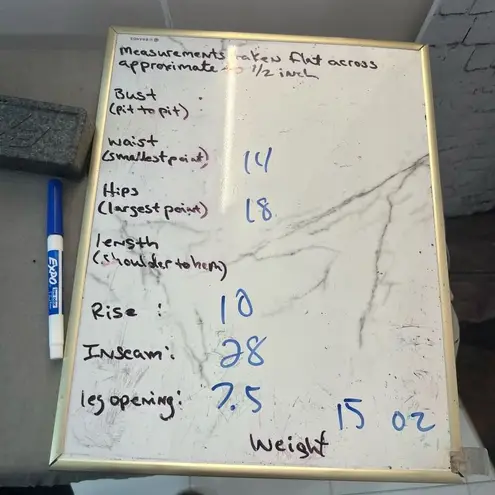 measurements taken flat across
approximate to 1/2 inch
Bust :
(pit to pit)
waist
(smallest point) 14
Hips
(largest point) 18
length
(shoulder to hem)
Rise : 10
Inseam: 28
leg opening: 7.5
15 oz
Weight
EXPO